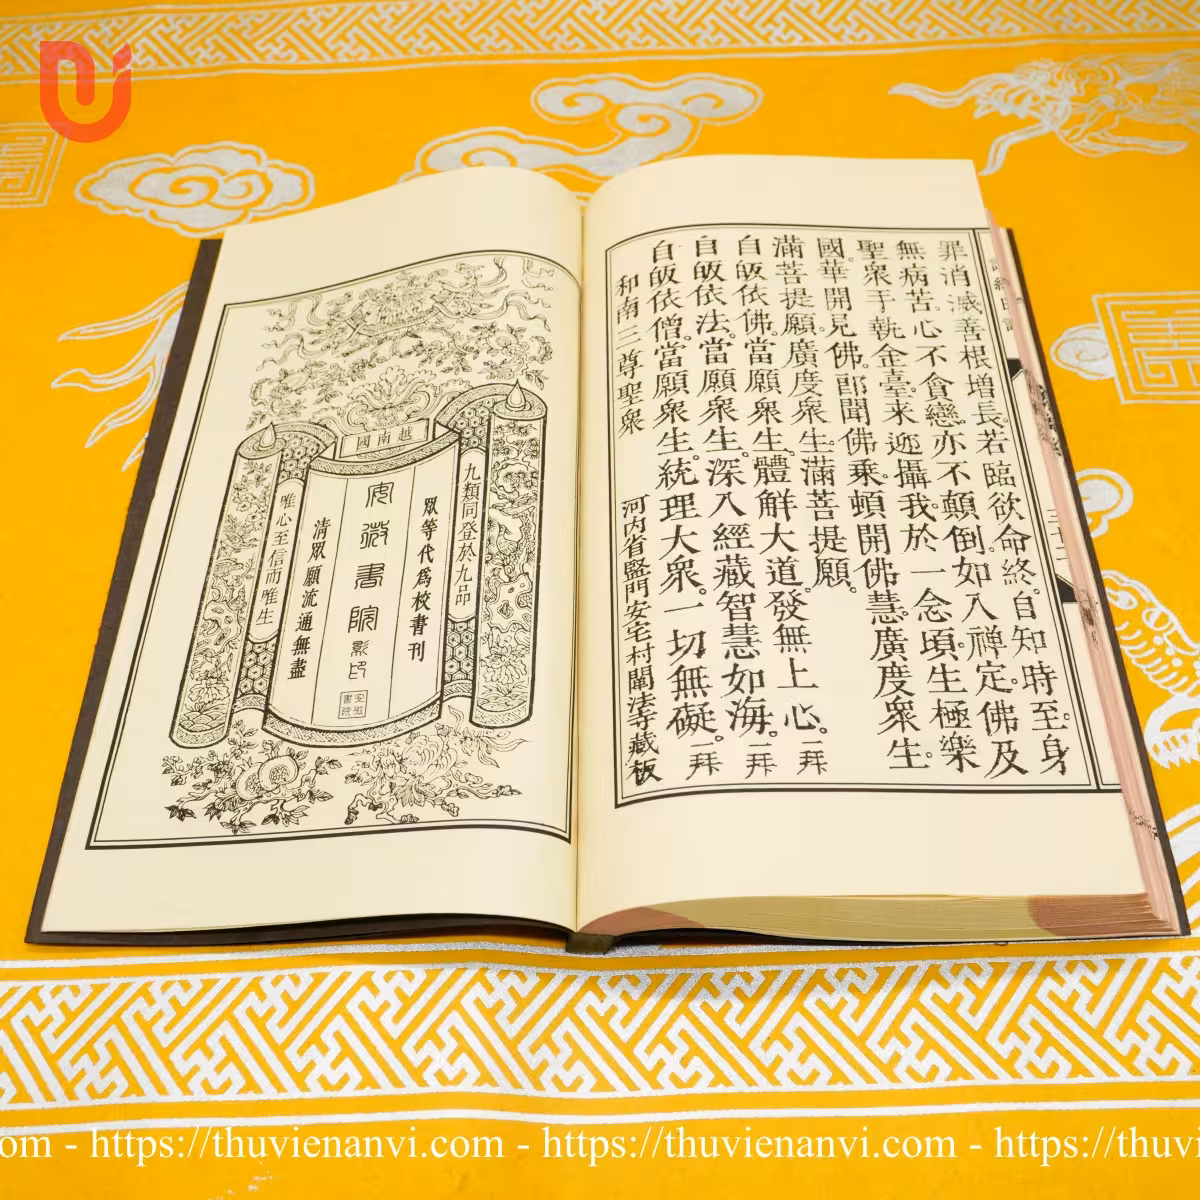 罪消滅善根增長。若臨欲命終。自知時至。身
無病苦心不貪戀。亦不顛倒。如入禪定。佛及
聖眾手執金臺。來迎攝我。於一念頃。生極樂
國。華開見佛。即聞佛乘。頓開佛慧。廣度眾生
滿菩提願。廣度眾生。滿菩提願。
自皈依佛。當願眾生。體解大道。發無上心。一拜
自皈依法。當願眾生。深入經藏。智慧如海。一拜
自皈依僧。當願眾生。統理大眾。一切無礙。一拜
和南三尊聖眾 河內省監門安宅村闡法寺藏板
越南國
九類同登於九品
眾等代爲校書刊
安微書院影印
安微書院
清眾願流通無盡
唯心至信而唯生
om - https://thuvienanvi.com - https://thuvi